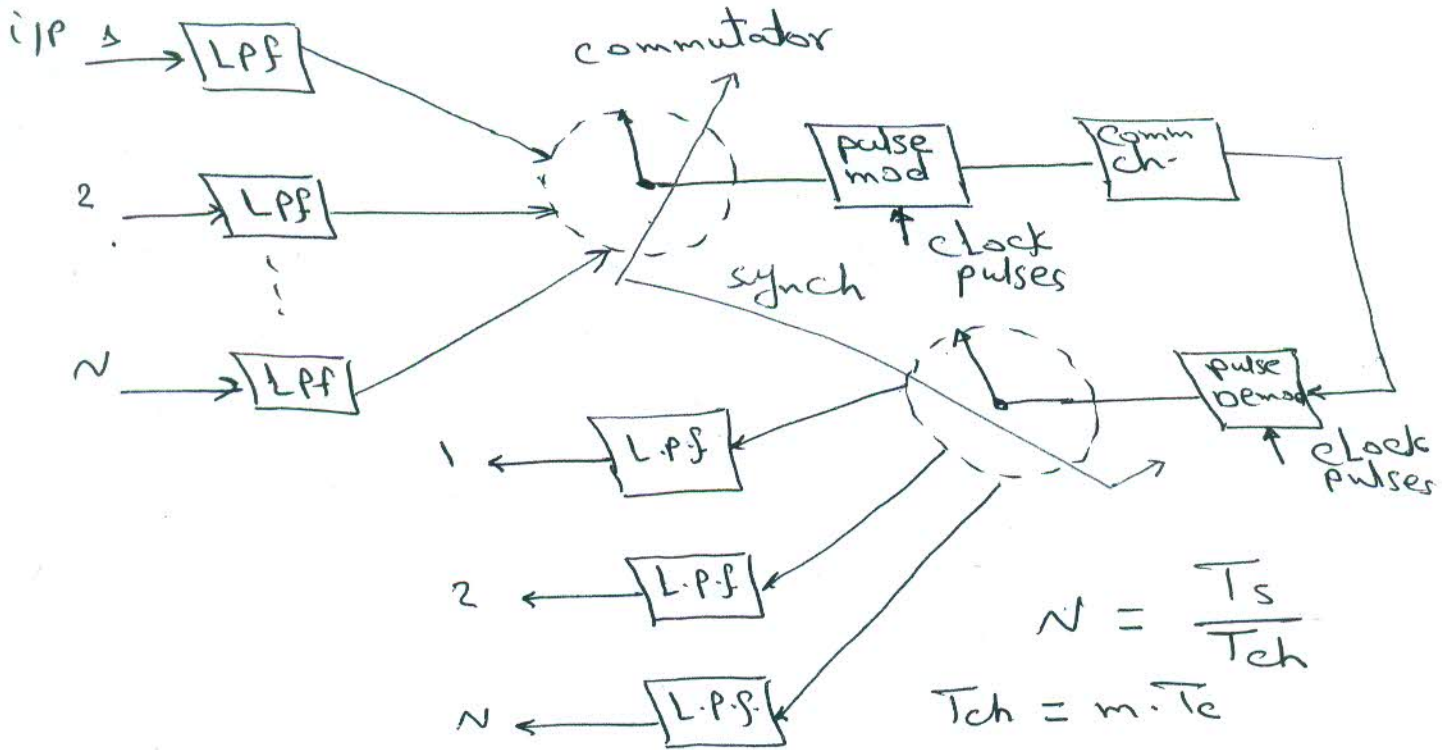 i/p 1
Lpf
commutator
pulse
mod
comm
ch-
2
Lpf
clock
pulses
synch
N
Lpf
pulse
Demod
clock
pulses
1
L.p.f
2
L.p.f
N
L.p.f.
N = Ts / Tch
Tch = m. Tc